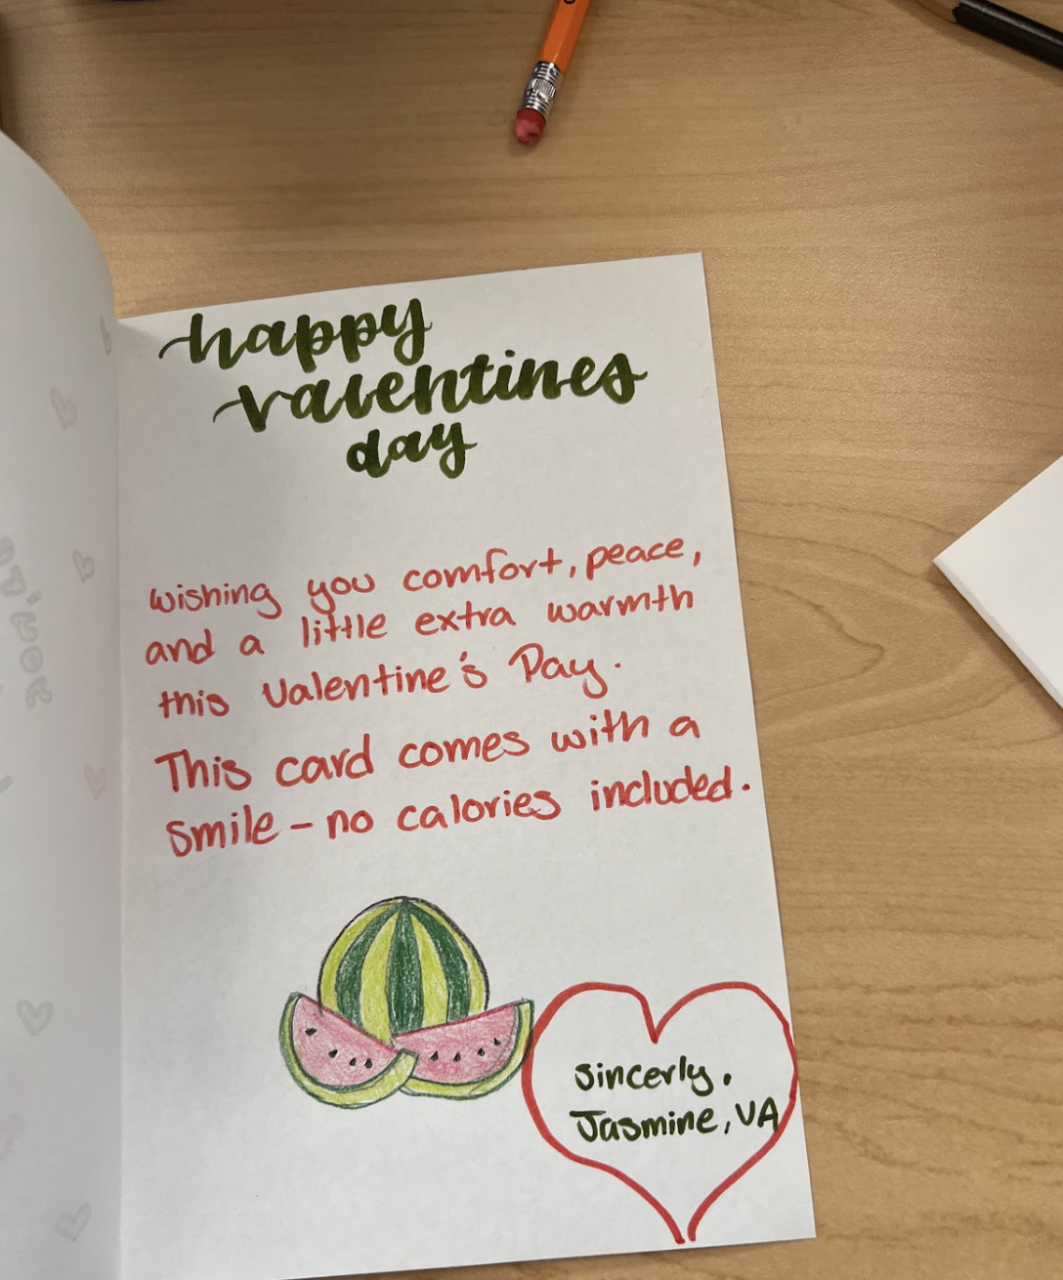 happy
valentines
day
wishing you comfort, peace,
and a little extra warmth
this Valentine's Day.
This card comes with a
smile - no calories included.
sincerly.
Jasmine, VA